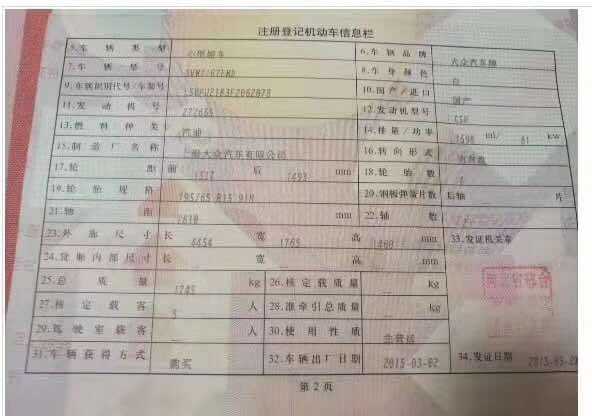 注册登记机动车信息栏
5.车辆类型 小型轿车 6.车辆品牌 大众汽车牌
7.车辆型号 8.车身颜色 白
9.车辆识别代号/车架号 10.国产/进口 国产
11.发动机号 272665 12.发动机型号
13.燃料种类 汽油 14.排量/功率 1598 ml/ 81 kw
15.制造厂名称 上海大众汽车有限公司 16.转向形式 方向盘
17.轮距 前 后 1493 mm 18.轮胎数
19.轮胎规格 195/65 R15 91H 20.钢板弹簧片数 后轴 片
21.轴距 2610 mm 22.轴数
23.外廓尺寸 长 4454 宽 1765 高 1460 mm 33.发证机关章
24.货厢内部尺寸 长 宽 高 mm
25.总质量 1245 kg 26.核定载质量 -- kg
27.核定载客 5 人 28.准牵引总质量 -- kg
29.驾驶室载客 -- 人 30.使用性质 非营运
31.车辆获得方式 购买 32.车辆出厂日期 2015-03-02 34.发证日期
第2页